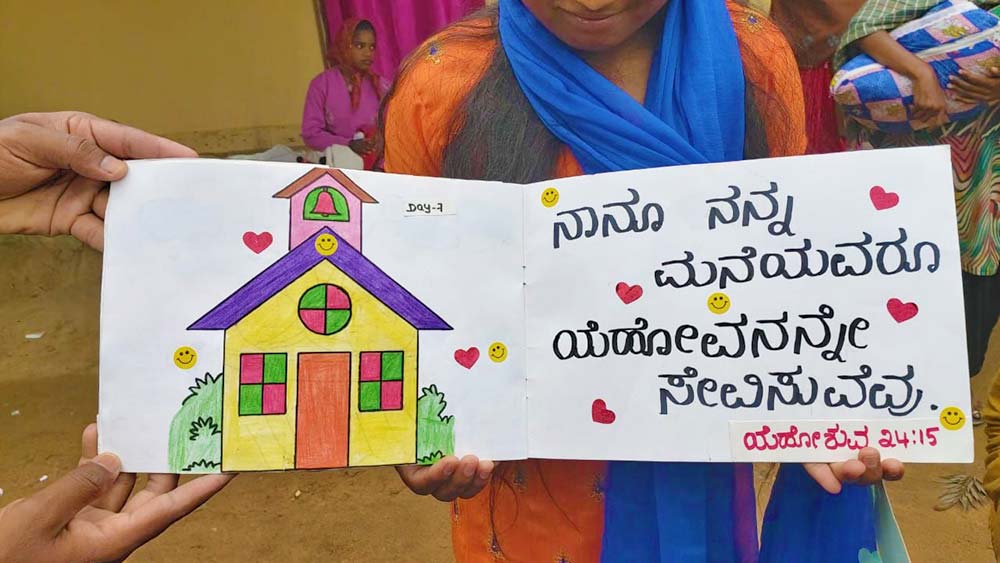 DAY-7
ನಾನೂ ನನ್ನ
ಮನೆಯವರೂ
ಯೆಹೋವನನ್ನೇ
ಸೇವಿಸುವೆವು.
ಯೆಹೋಶುವ 24:15